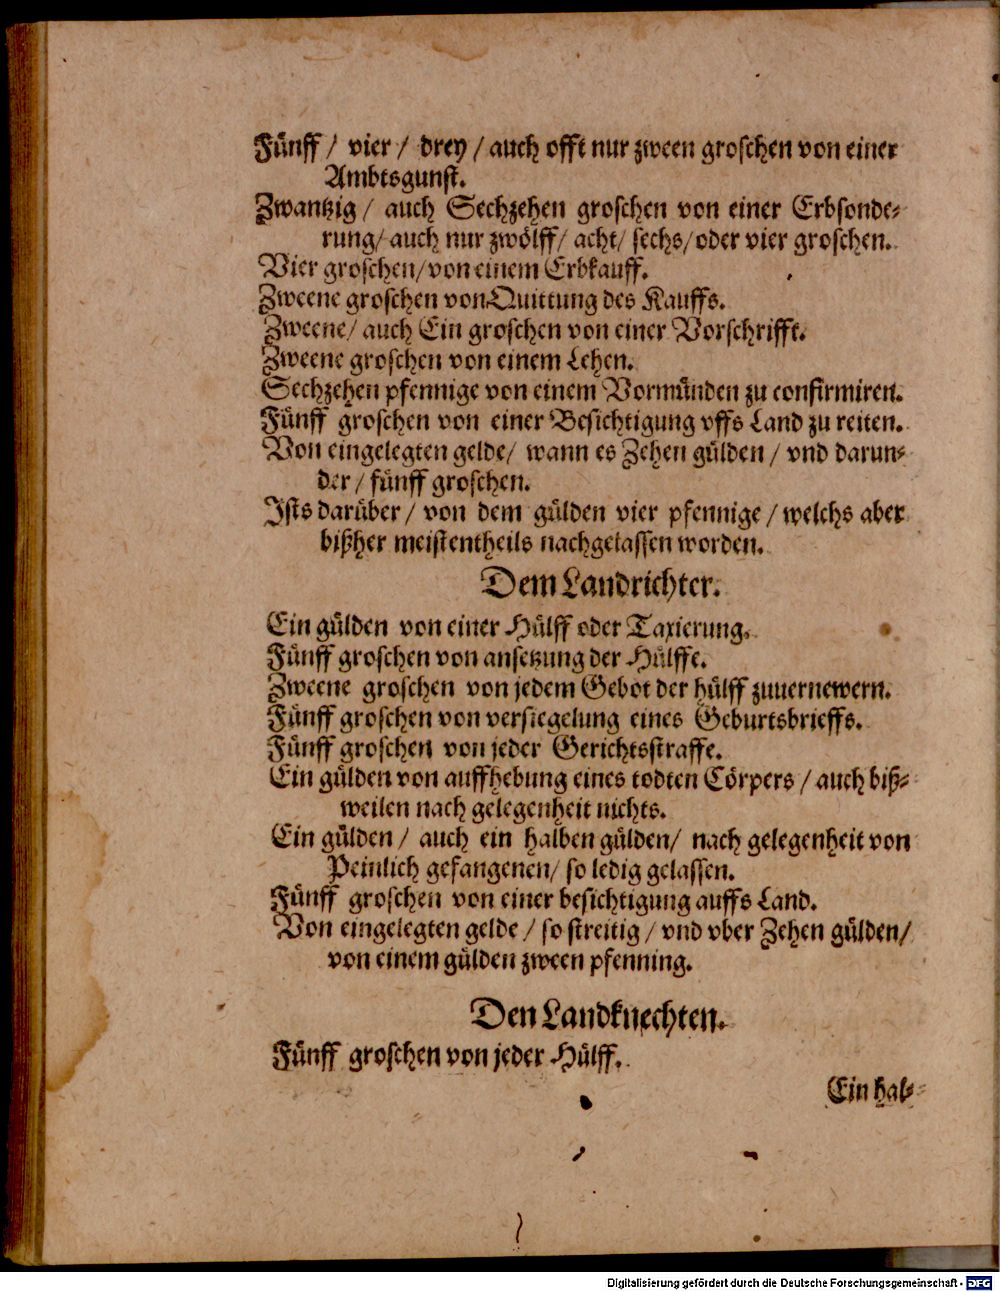 Fünff / vier / drey / auch offt nur zween groschen von einer
Ambtsgunst.
Zwantzig / auch Sechzehen groschen von einer Erbsonde-
rung / auch nur zwölff / acht / sechs / oder vier groschen.
Vier groschen / von einem Erbkauff.
Zweene groschen von Quittung des Kauffs.
Zweene / auch Ein groschen von einer Vorschrifft.
Zweene groschen von einem Lehen.
Sechzehen pfennige von einem Vormünden zu confirmiren.
Fünff groschen von einer Besichtigung vffs Land zu reiten.
Von eingelegten gelde / wann es Zehen gülden / vnd darun-
der / fünff groschen.
Ists darüber / von dem gülden vier pfennige / welchs aber
bißher meistentheils nachgelassen worden.
Dem Landrichter.
Ein gülden von einer Hülff oder Taxierung.
Fünff groschen von ansetzung der Hülffe.
Zweene groschen von jedem Gebot der hülff zuuernewern.
Fünff groschen von versiegelung eines Geburtsbrieffs.
Fünff groschen von jeder Gerichtsstraffe.
Ein gülden von auffhebung eines todten Cörpers / auch biß-
weilen nach gelegenheit nichts.
Ein gülden / auch ein halben gülden / nach gelegenheit von
Peinlich gefangenen / so ledig gelassen.
Fünff groschen von einer besichtigung auffs Land.
Von eingelegten gelde / so streitig / vnd vber Zehen gülden /
von einem gülden zween pfenning.
Den Landknechten.
Fünff groschen von jeder Hülff.
Ein hal-
Digitalisierung gefördert durch die Deutsche Forschungsgemeinschaft - DFG